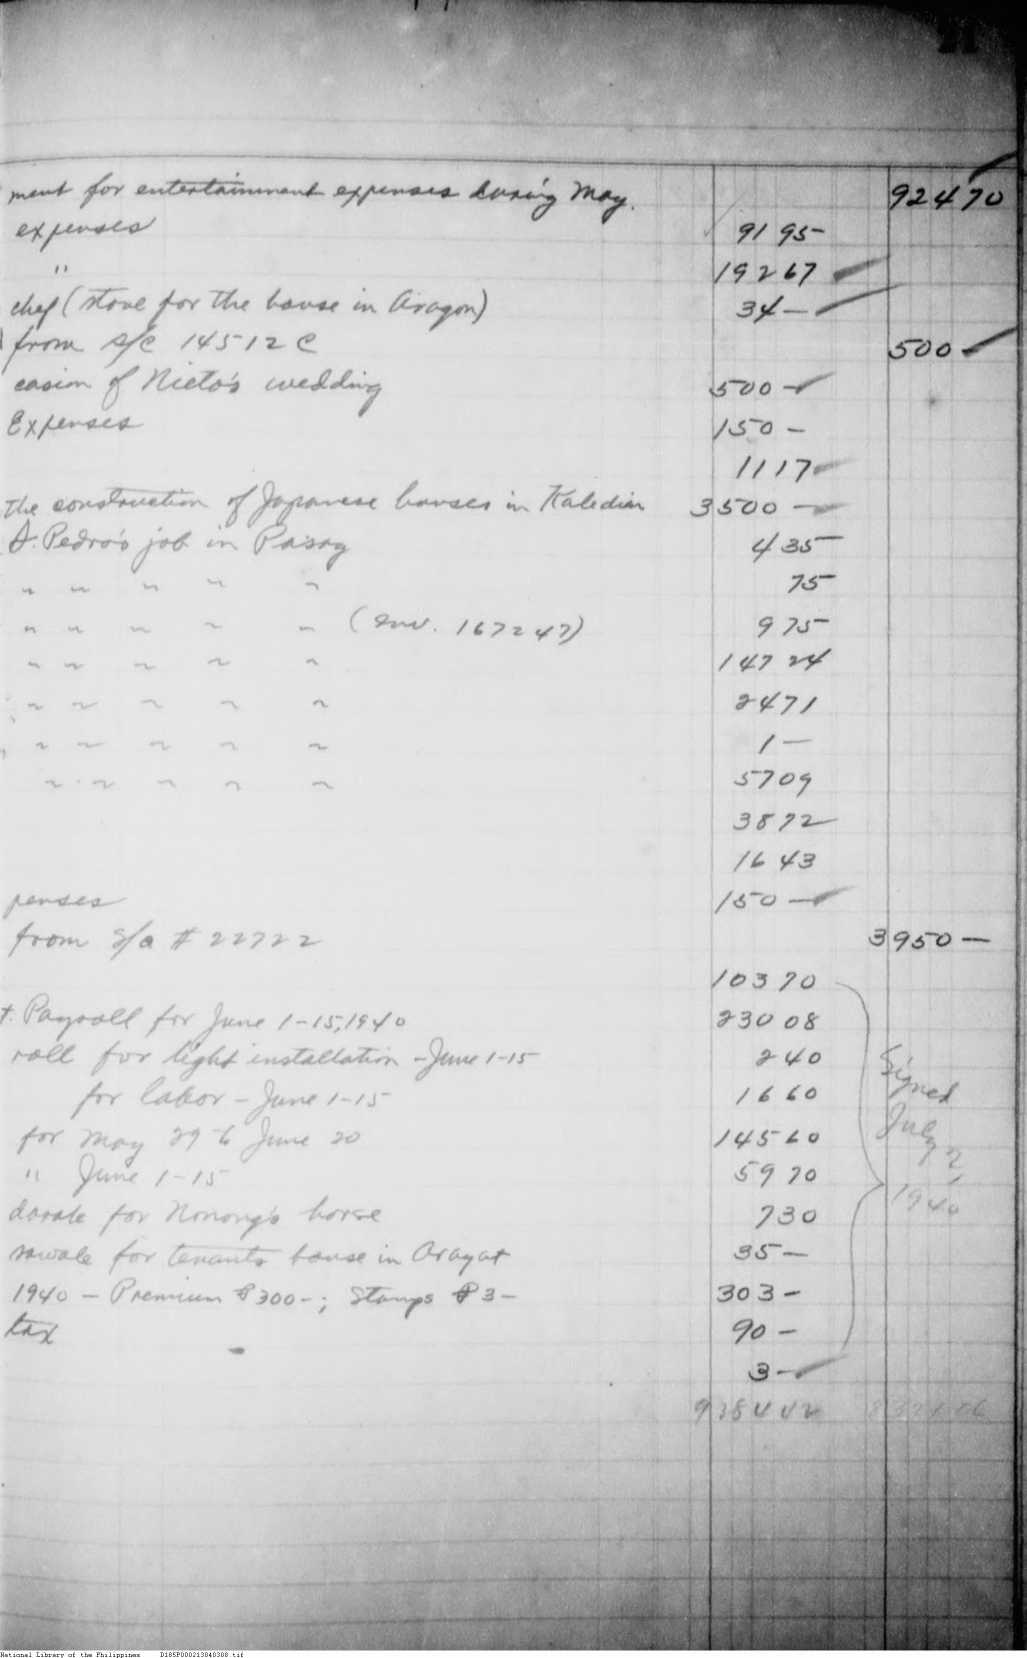 21
ment for entertainment expenses during May. 924 70
expenses 91 95
" 192 67
chef (stove for the house in Aragon) 34 —
from s/c 14512 C 500 —
casion of Nieto's wedding 500 —
Expenses 150 —
11 17
the construction of Japanese houses in Kaledian 3500 —
S. Pedro's job in Pasay 4 35
" " " " " 75
" " " " " (env. 167247) 9 75
" " " " " 147 24
" " " " " 24 71
" " " " " 1 —
" " " " " 57 09
38 72
16 43
penses 150 —
from s/a # 22722 3950 —
103 70
t. Payroll for June 1-15, 1940 230 08
roll for light installation - June 1-15 2 40
for labor - June 1-15 16 60
for May 29 to June 20 145 60
" June 1-15 59 70
darak for Nonong's horse 7 30
sawale for tenants house in Arayat 35 —
1940 — Premium ₱300-; Stamps ₱3- 303 —
tax 90 —
3 —
Signed
July 2,
1940
9384 42